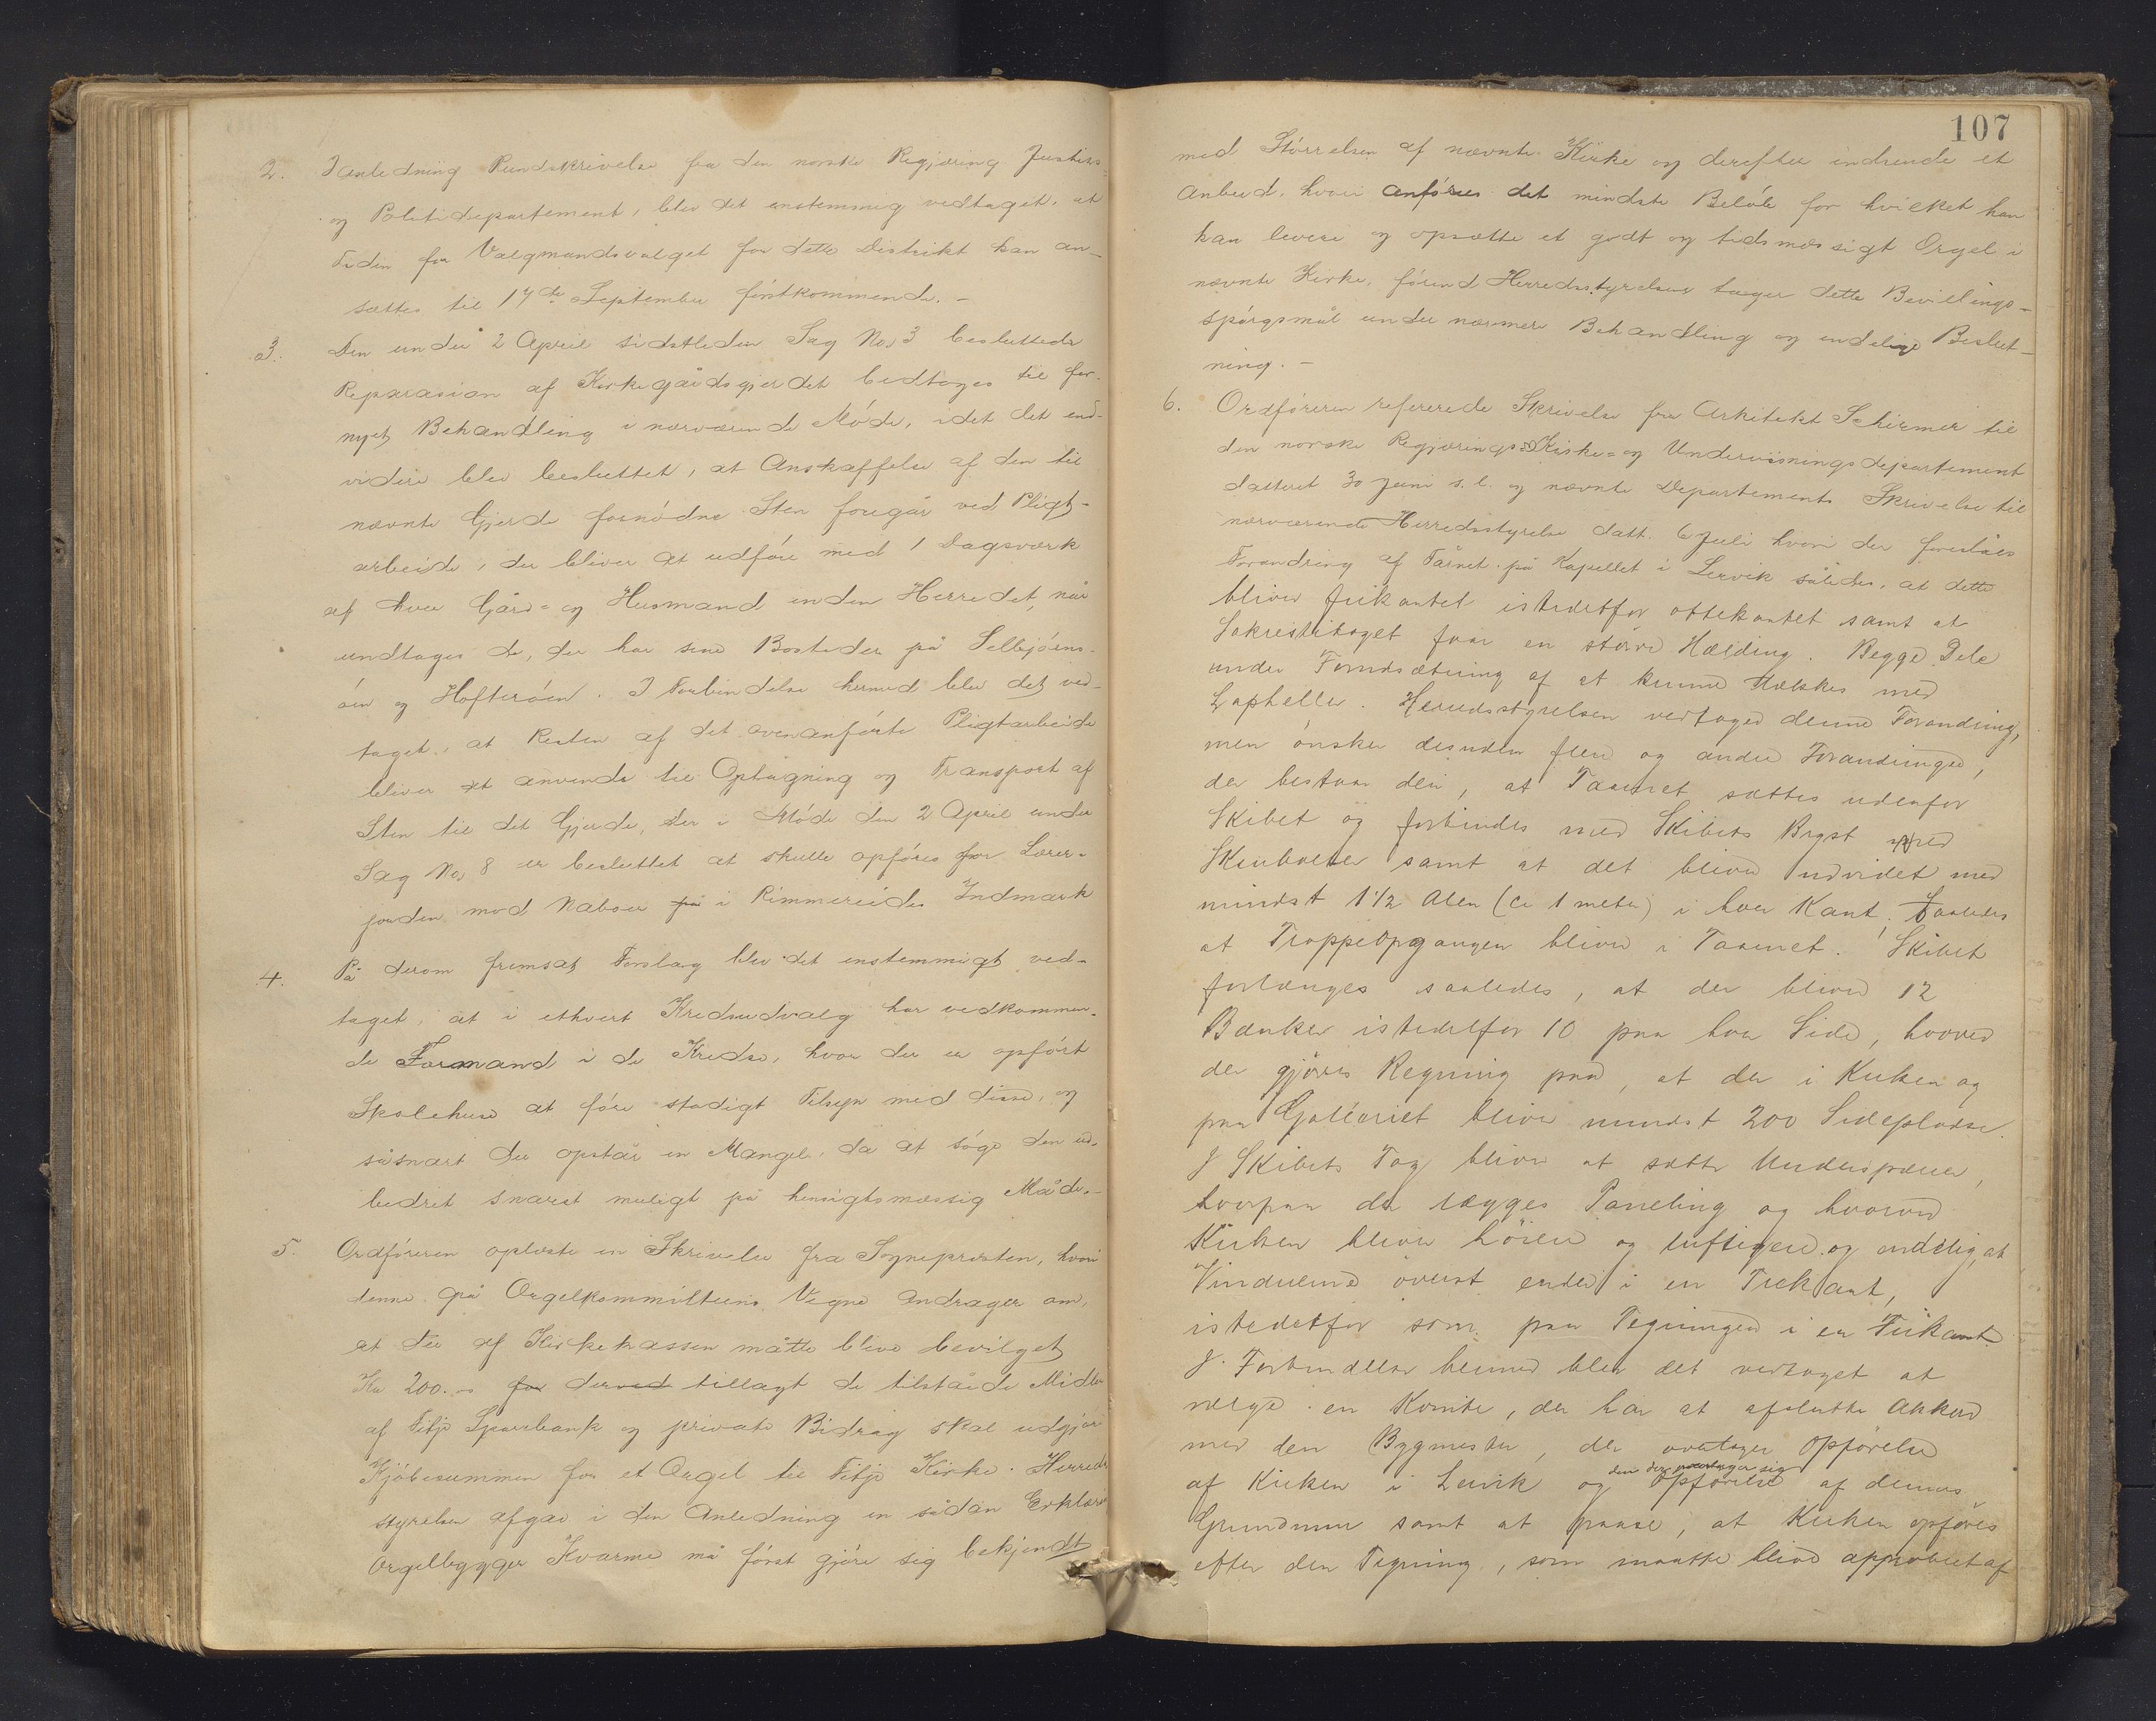 2. I Anledning Rundskrivelse fra den norske Regjæring Justits=
og Politidepartement, blev det enstemmig vedtaget, at
Tiden for Valgmandsvalget for dette Distrikt kan an-
sættes til 17de September förstkommende. -
3. Den under 2 April sidstleden Sag No, 3 besluttede
Reparasion af Kirkegårdsgjerdet bedtoges til for-
nyet Behandling i nærværende Möde, idet det end-
videre blev besluttet, at Anskaffelse af den til
nævnte Gjerde fornödne Sten foregår ved Pligt-
arbeide, der bliver at udföre med 1 Dagsværk
af hver Gård= og Husmand inden Herredet, når
undtages de, der har sine Bosteder på Selbjörns-
öen og Hofteröen. I Forbindelse hermed blev det ved-
taget, at Resten af det ovenanförte Pligtarbeide
bliver at anvende til Optagning og Transport af
Sten til det Gjerde, der i Möde den 2 April under
Sag No, 8 er besluttet at skulle opföres for Lærer-
jorden mod Naboer på i Rimmereides Indmark
4. På derom fremsat Forslag blev det enstemmigt ved-
taget, at i ethvert Kredsudvalg har vedkommen-
de Formand i de Kredse, hvor der er opfört
Skolehuse at före stadigt Tilsyn med disse, og
såsnart der opstår en Mangel, da at söge den ud-
bedret snarest muligt på hensigtsmæssig Måde. -
5. Ordföreren oplæste en Skrivelse fra Sognepresten, hvori
denne på Orgelkommitteens Vegne andrager om,
at der af Kirkekassen måtte blive bevilget
Kr 200.00 for derved tillagt de tilståede Midler
af Fitje Sparebank og private Bidrag skal udgjöre
Kjöbesummen for et Orgel til Fitje Kirke. Herreds
styrelsen afgav i den Anledning en sådan Erklæring
Orgelbygger Kvarme må först gjöre sig bekjendt
107
med Störrelsen af nævnte Kirke og derefter indsende et
Anbud, hvori anföres det mindste Belöb for hvilket han
kan levere og opsætte et godt og tidsmæssigt Orgel i
nævnte Kirke, förend Herredsstyrelsen tager dette Bevilings-
spörgsmål under nærmere Behandling og endelige Beslut-
ning. -
6. Ordföreren refererede Skrivelse fra Arkitekt Schirmer til
den norske Regjærings Kirke= og Undervisningsdepartement
datteret 30 Juni s.l. og nævnte Departements Skrivelse til
nærværende Herredsstyrelse datt. 6 Juli hvori der foreslåes
Forandring af Tårnet på Kapellet i Lervik således, at dette
bliver firkantet istedetfor ottekantet samt at
Sakrestitaget faar en större Hælding. Begge Dele
under Forudsætning af at kunne tækkes med
Tapheller. Herredsstyrelsen vedtager denne Forandring,
men önsker desuden flere og andre Forandringer,
der bestaar deri, at Taarnet sættes udenfor
Skibet og forbindes med Skibets Bryst med
Skrubolter samt at det bliver udvidet med
mindst 1 1/2 Alen (ca 1 meter) i hver Kant, Saaledes
at Trappeopgangen bliver i Taarnet. Skibet
forlænges saaledes, at der bliver 12
Bænker istedetfor 10 paa hver Side, hvorved
der gjöres Regning paa, at der i Kirken og
paa Galleriet bliver mindst 200 Sidepladse.
I Skibets Tag bliver at sætte Undersperrer,
hvorpaa der lægges Paneling og hvorved
Kirken bliver höiere og luftigere og endelig, at
Vinduerne överst ender i en Trekant,
istedetfor som paa Tegningen i en Firkant.
I Forbindelse hermed blev det vedtaget at
vælge en Komite, der har at afslutte Akkord
med den Bygmester, der overtager Opförelse
af Kirken i Lervik og den der paatager sig Opförelse af dennes
Grundmur samt at paase, at Kirken opföres
efter den Tegning, som maatte blive approberet af